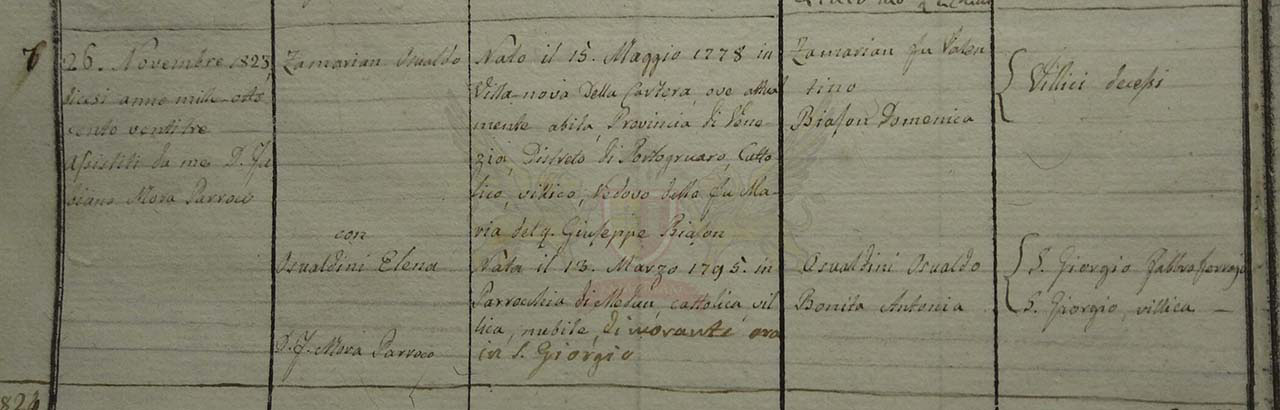 7
26. Novembre 1823,
dicesi anno mille otto
cento ventitre
Assistiti da me D. Fa
biano Mora Parroco
Zamarian Osualdo
con
Osualdini Elena
D. F. Mora Parroco
Nato il 15. Maggio 1778 in
Villa nova della Cartera, ove attual
mente abita, Provincia di Vene
zia, Distreto di Portogruaro, Catto
lico, villico, Vedovo della fu Ma-
ria del q. Giuseppe Biason
Nata il 13. Marzo 1795. in
Parrocchia di Meduna, cattolica, vil
lica, nubile, dimorante ora
in S. Giorgio
Zamarian fu Valen
tino
Biason Domenica
Osualdini Osualdo
Bonita Antonia
Villici decessi
S. Giorgio fabbro ferrajo
S. Giorgio, villica